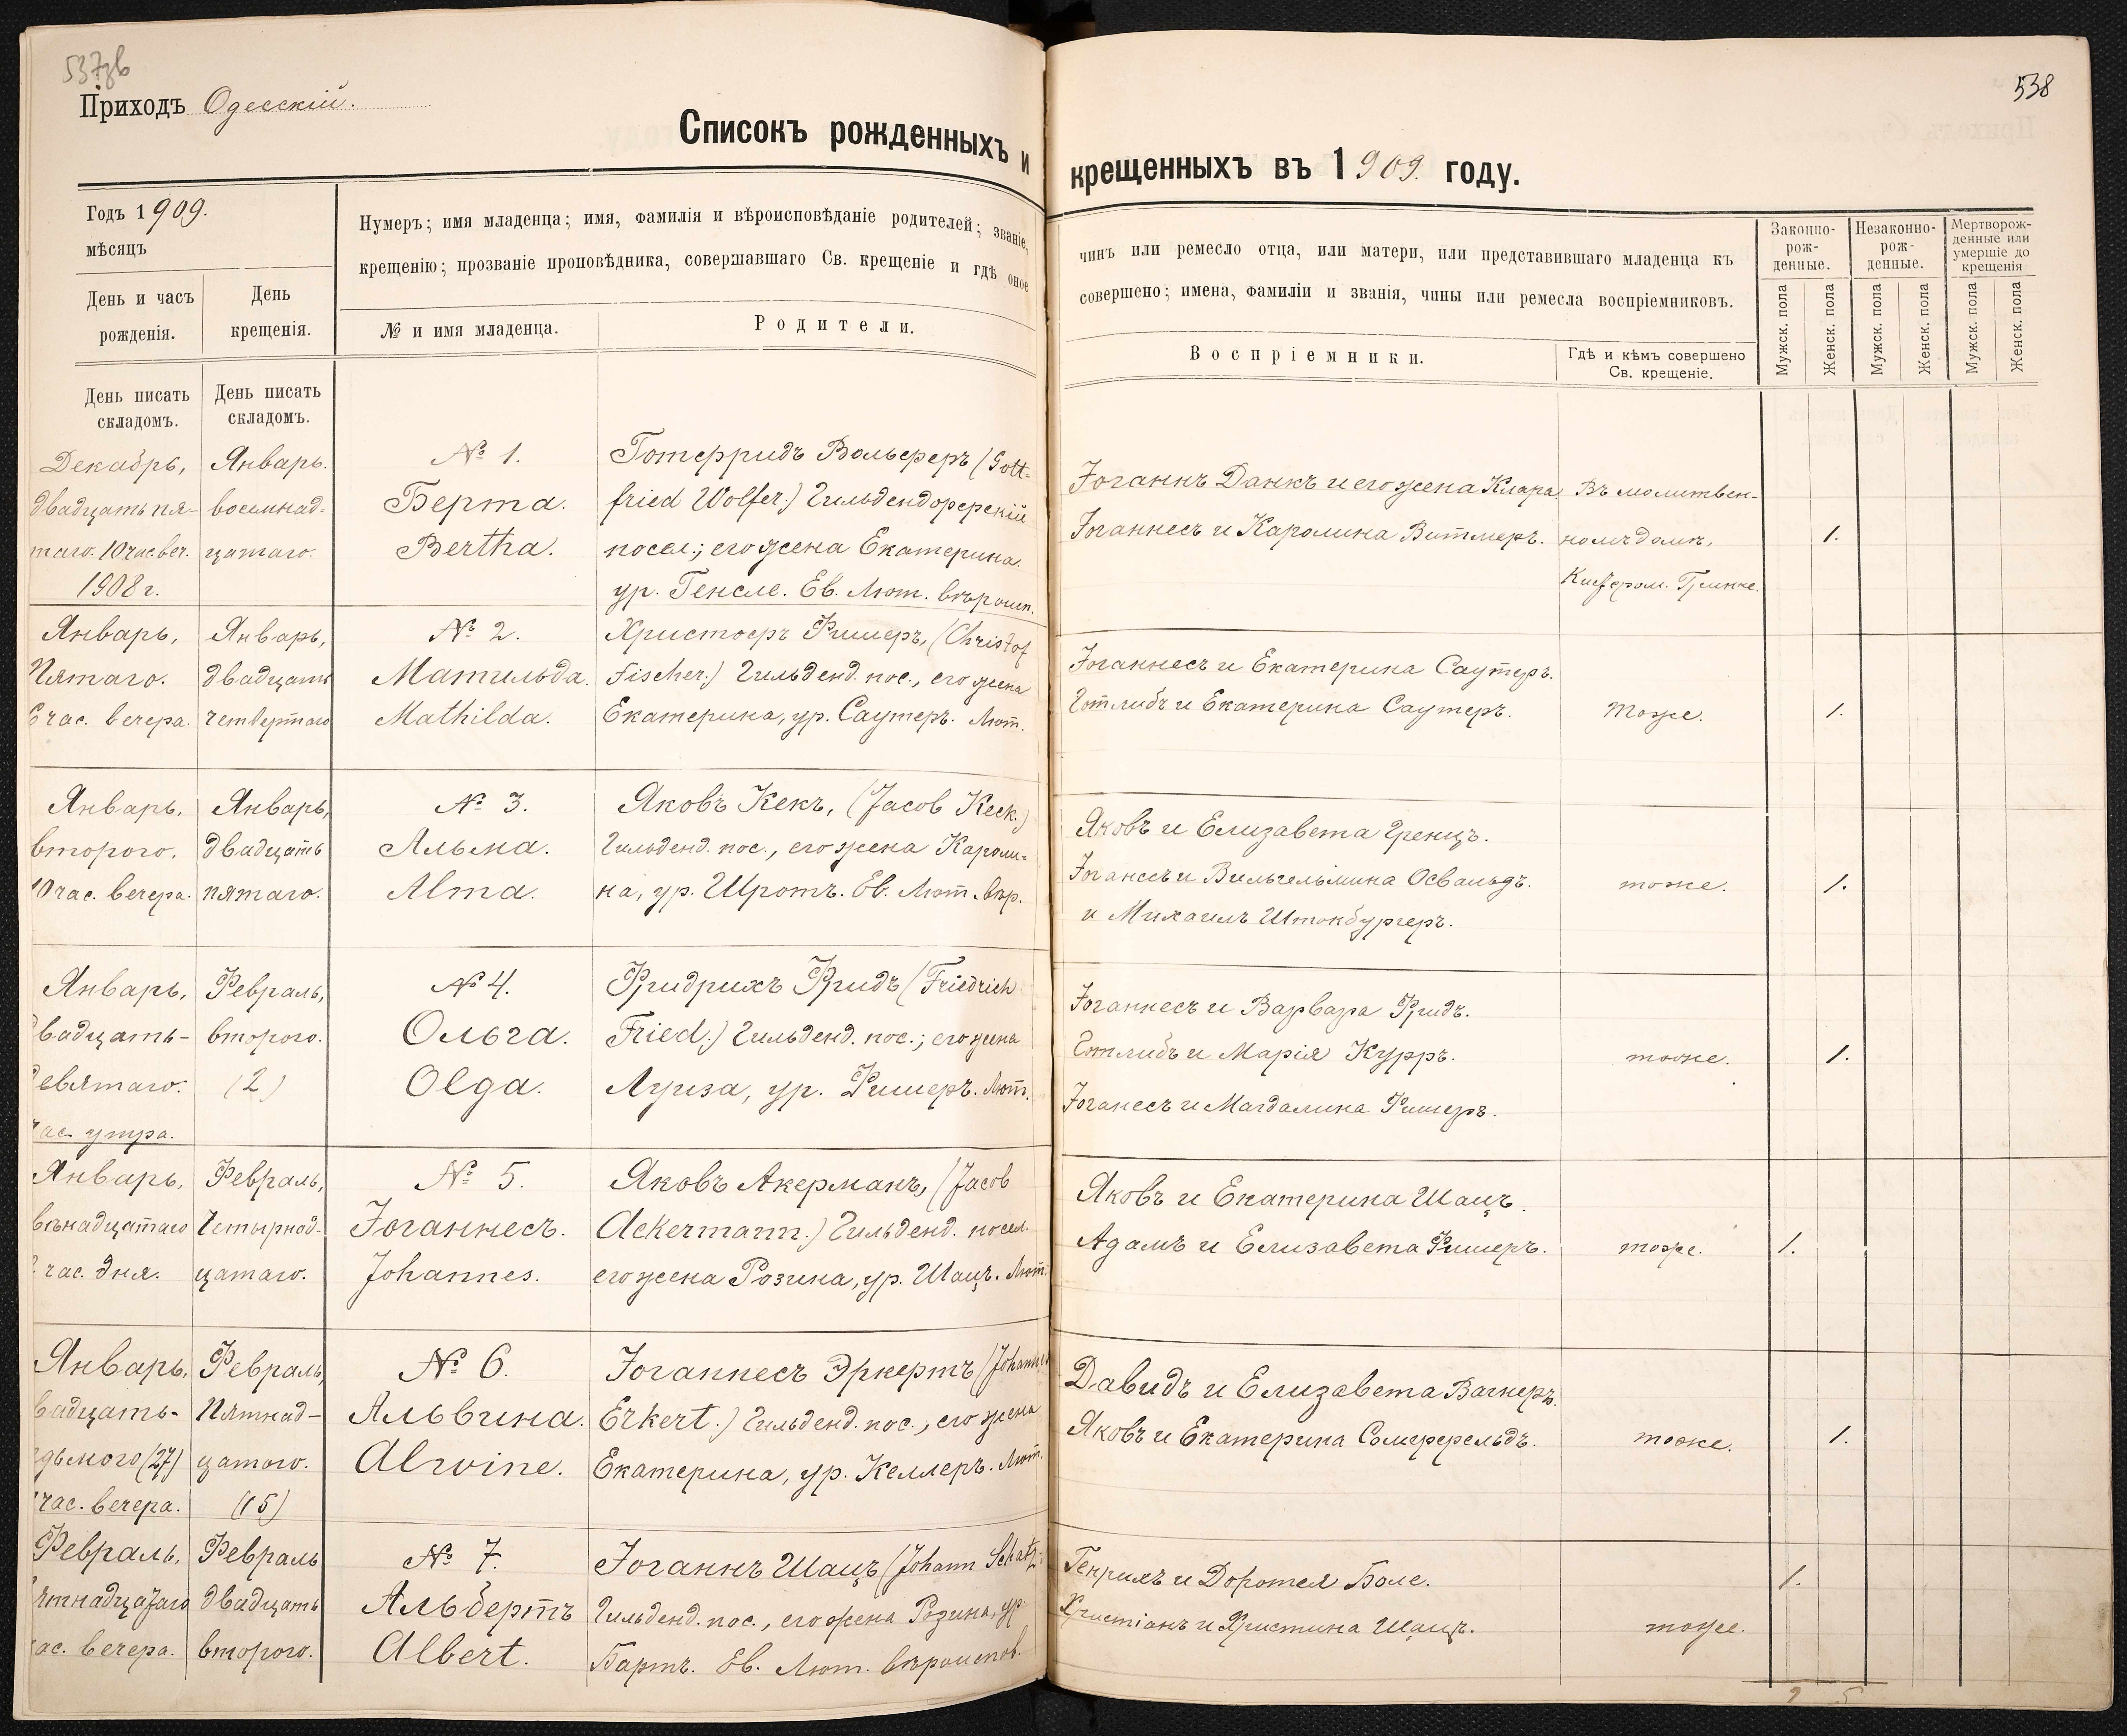 537об
Приходъ Одесскій.
Списокъ рожденныхъ и
Годъ 1909.
мѣсяцъ
Нумеръ; имя младенца; имя, фамилія и вѣроисповѣданіе родителей; званіе,
крещенію; прозваніе проповѣдника, совершавшаго Св. крещеніе и гдѣ оное
День и часъ
рожденія.
День
крещенія.
№ и имя младенца.
Родители.
День писать
складомъ.
День писать
складомъ.
Декабрь,
двадцать пя-
таго. 10 час. веч.
1908 г.
Январь.
восемнад-
цатаго.
№ 1.
Берта.
Bertha.
Готфридъ Вольферъ (Gott-
fried Wolfer.) Гильдендорфскій
посел.; его жена Екатерина
ур. Генсле. Ев. Лют. вѣроисп.
Январь,
Пятаго.
6 час. вечера.
Январь,
двадцать
четвертаго
№ 2.
Матильда.
Mathilda.
Христофъ Фишеръ, (Christof
Fischer.) Гильденд. пос., его жена
Екатерина, ур. Саутеръ. Лют.
Январь,
второго.
10 час. вечера.
Январь,
двадцать
пятаго.
№ 3.
Альма.
Alma.
Яковъ Кекъ, (Jacob Keck.)
Гильденд. пос., его жена Кароли-
на, ур. Шротъ. Ев. Лют. вѣр.
Январь,
двадцать-
девятаго.
час. утра.
Февраль,
второго.
(2)
№ 4.
Ольга.
Olga.
Фридрихъ Фридъ (Friedrich
Fried.) Гильденд. пос.; его жена
Луиза, ур. Фишеръ. Лют.
Январь,
вѣнадцатаго
час. дня.
Февраль,
Четырнад-
цатаго.
№ 5.
Іоганнесъ.
Johannes.
Яковъ Акерманъ, (Jacob
Ackermann.) Гильденд. посел.
его жена Розина, ур. Шацъ. Лют.
Январь,
вадцать-
дьмого (27)
час. вечера.
Февраль,
Пятнад-
цатого.
(15)
№ 6.
Альвина.
Alwine.
Іоганнесъ Эркертъ (Johannes
Erkert.) Гильденд. пос., его жена
Екатерина, ур. Келлеръ. Лют.
Февраль,
ятнадцатаго
ас. вечера.
Февраль
двадцать
второго.
№ 7.
Альбертъ
Albert.
Іоганнъ Шацъ (Johann Schatz.)
Гильденд. пос., его жена Розина, ур.
Бартъ. Ев. Лют. вѣроиспов.
538
крещенныхъ въ 1909. году.
чинъ или ремесло отца, или матери, или представившаго младенца къ
совершено; имена, фамиліи и званія, чины или ремесла воспріемниковъ.
Воспріемники.
Гдѣ и кѣмъ совершено
Св. крещеніе.
Законно-
рож-
денные.
Незаконно-
рож-
денные.
Мертворож-
денные или
умершіе до
крещенія
Мужск. пола
Женск. пола
Мужск. пола
Женск. пола
Мужск. пола
Женск. пола
Іоганнъ Данкъ и его жена Клара
Іоганнесъ и Каролина Витмеръ.
Въ молитвен-
номъ домѣ,
Кистером. Гринке.
1.
Іоганнесъ и Екатерина Саутеръ.
Готлибъ и Екатерина Саутеръ.
Тоже.
1.
Яковъ и Елизавета Гренцъ.
Іоганесъ и Вильгельмина Освальдъ.
и Михаилъ Штокбургеръ.
тоже.
1.
Іоганнесъ и Варвара Фридъ.
Готлибъ и Марія Курръ.
Іоганесъ и Магдалина Фишеръ.
тоже.
1.
Яковъ и Екатерина Шацъ.
Адамъ и Елизавета Фишеръ.
тоже.
1.
Давидъ и Елизавета Вагнеръ.
Яковъ и Екатерина Сомерфельдъ.
тоже.
1.
Генрихъ и Доротея Боле.
Христіанъ и Христина Шацъ.
тоже.
1.
2 5